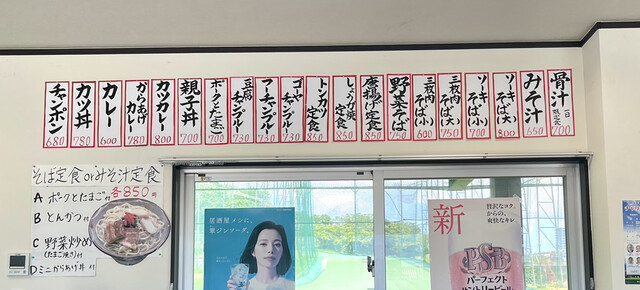 骨汁 700
みそ汁 650
ソーキそば(大) 800
ソーキそば(小) 700
三枚肉そば(大) 750
三枚肉そば(小) 600
野菜そば 750
唐揚げ定食 850
しょうが焼定食 850
トンカツ定食 850
ゴーヤーチャンプルー 730
フーチャンプルー 730
豆腐チャンプルー 730
ポークとたまご 700
親子丼 700
カツカレー 800
からあげカレー 780
カレー 600
カツ丼 780
チャンポン 680
そば定食orみそ汁定食
A ポークとたまご付 各850円
B とんかつ付
C 野菜炒め付
(たまご焼き)
D ミニからあげ丼付
居酒屋メシに、
翠ジンソーダ。
新
贅沢なコク、
からの、
爽快なキレ。
PSB
パーフェクト
サントリービール